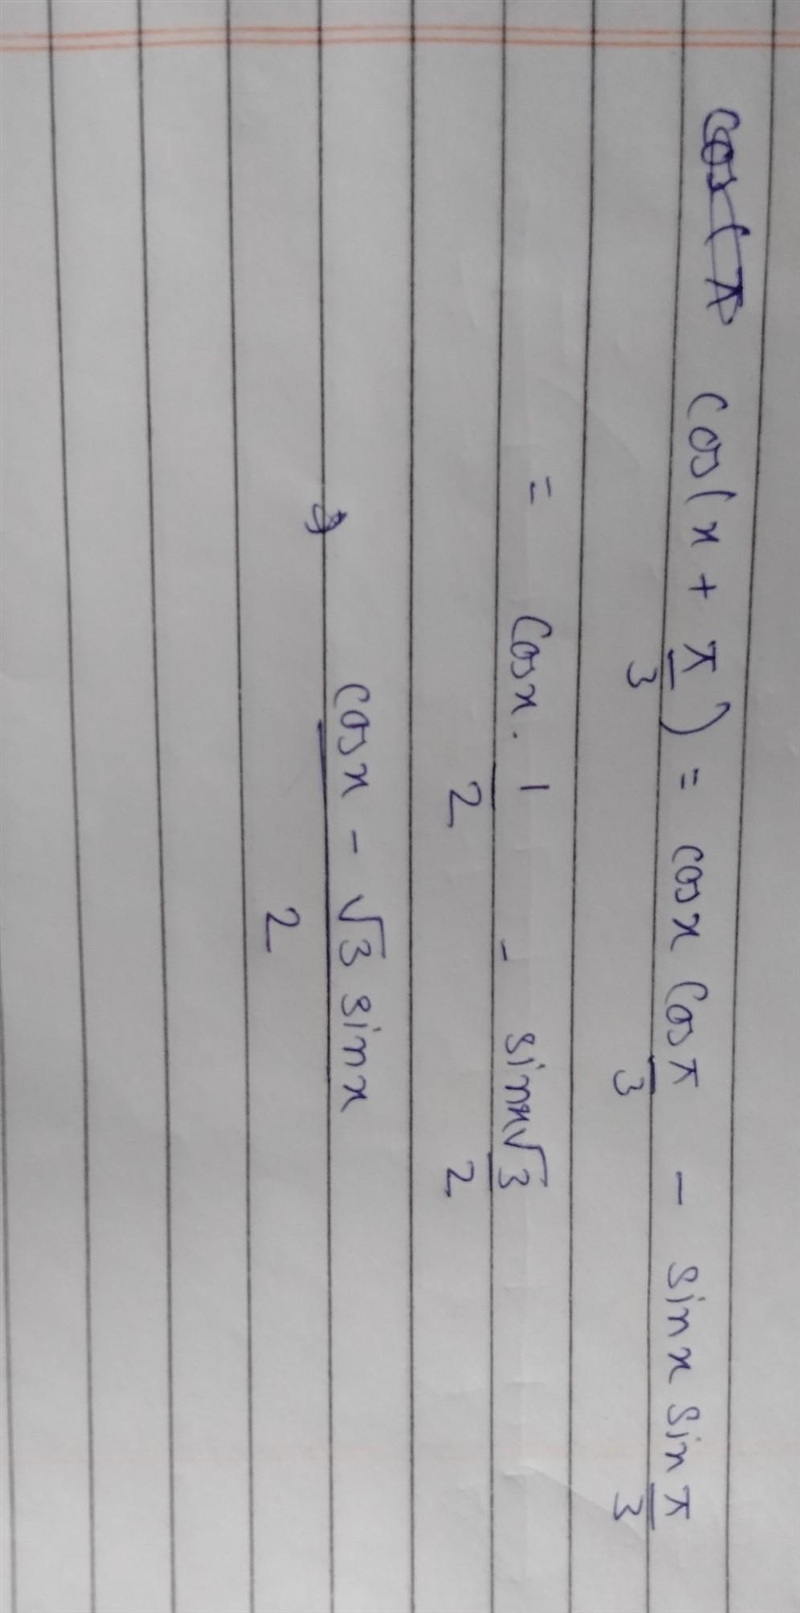 cos(x + π/3) = cosx cos π/3 - sinx sin π/3
= cosx . 1/2 - sinx √3/2
cosx - √3 sinx / 2